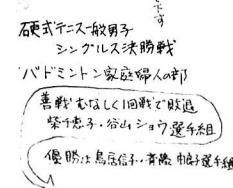 です
硬式テニス一般男子
シングルス決勝戦
バドミントン家庭婦人の部
善戦むなしく1回戦で敗退
柴千恵子・谷山ショウ選手組
優勝は鳥居信子・斉藤 選手組